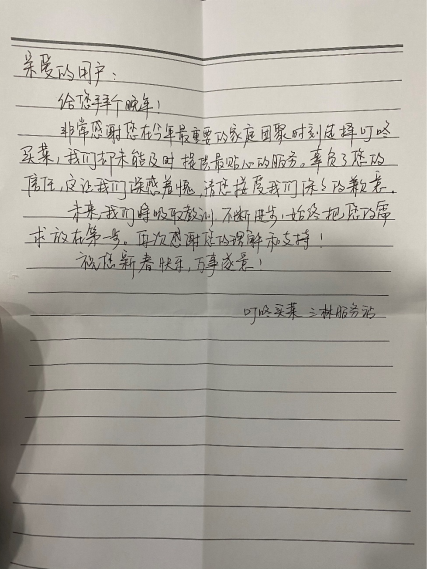 亲爱的用户：
给您拜个晚年！
非常感谢您在今年最重要的家庭团聚时刻选择叮咚
买菜，我们却未能及时提供最贴心的服务，辜负了您的
信任，这让我们深感羞愧，请您接受我们深深的歉意。
未来，我们将吸取教训，不断进步，始终把您的需
求放在第一号。再次感谢您的理解和支持！
祝您新春快乐，万事遂意！
叮咚买菜 三林服务站